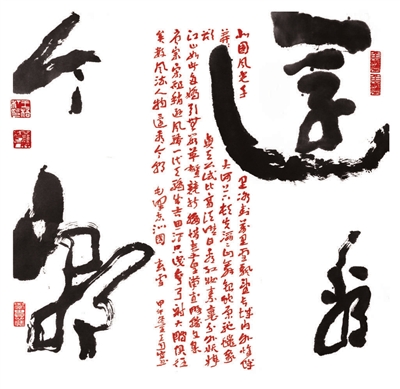 還看
今朝
北国风光千里冰封万里雪飘望长城内外惟馀
莽莽大河上下顿失滔滔山舞银蛇原驰蜡象
欲与天公试比高须晴日看红妆素裹分外妖娆
江山如此多娇引无数英雄竞折腰惜秦皇汉武略输文采
唐宗宋祖稍逊风骚一代天骄成吉思汗只识弯弓射大雕俱往
矣数风流人物还看今朝 毛泽东沁园春雪 甲午